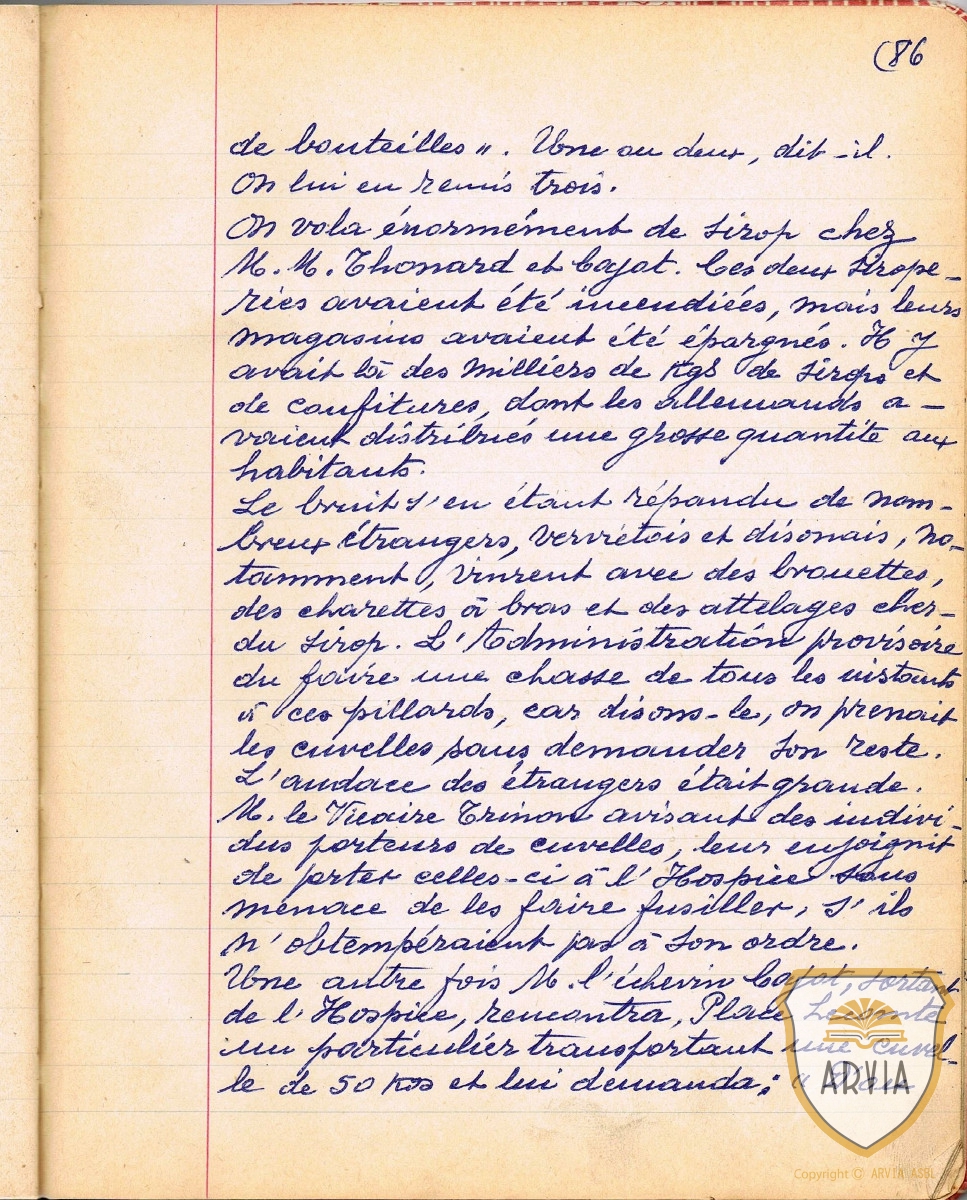 (86
de bouteilles ". Une ou deux, dit-il.
On lui en remis trois.
On vola énormément de sirop chez
M. M. Thonard et Cajot. Ces deux sirope-
ries avaient été incendiées, mais leurs
magasins avaient été épargnés. Il y
avait là des milliers de kgs de sirops et
de confitures, dont les allemands a-
vaient distribués une grosse quantité aux
habitants.
Le bruit s'en étant répandu de nom-
breux étrangers, verviétois et disonais, no-
tamment, vinrent avec des brouettes,
des charettes à bras et des attelages cher-
du sirop. L'Administration provisoire
du faire une chasse de tous les instants
à ces pillards, car disons-le, on prenait
les cuvelles, sans demander son reste.
L'audace des étrangers était grande.
M. le Vicaire Trinon avisant des indivi-
dus porteurs de cuvelles, leur enjoignit
de porter celles-ci à l'Hospice sous
menace de les faire fusiller, s'ils
n'obtempéraient pas à son ordre.
Une autre fois M. l'échevin Cajot, sortant
de l'Hospice, rencontra, Place Lecomte
un particulier transportant une cuvel-
le de 50 kgs et lui demanda : "
ARVIA
Copyright © ARVIA ASBL